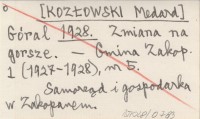 [KOZŁOWSKI Medard]
Góral 1928. Zmiana na
gorsze. — Gmina Zakop.
1 (1927-1928), nr 5.
Samorząd i gospodarka
w Zakopanem.